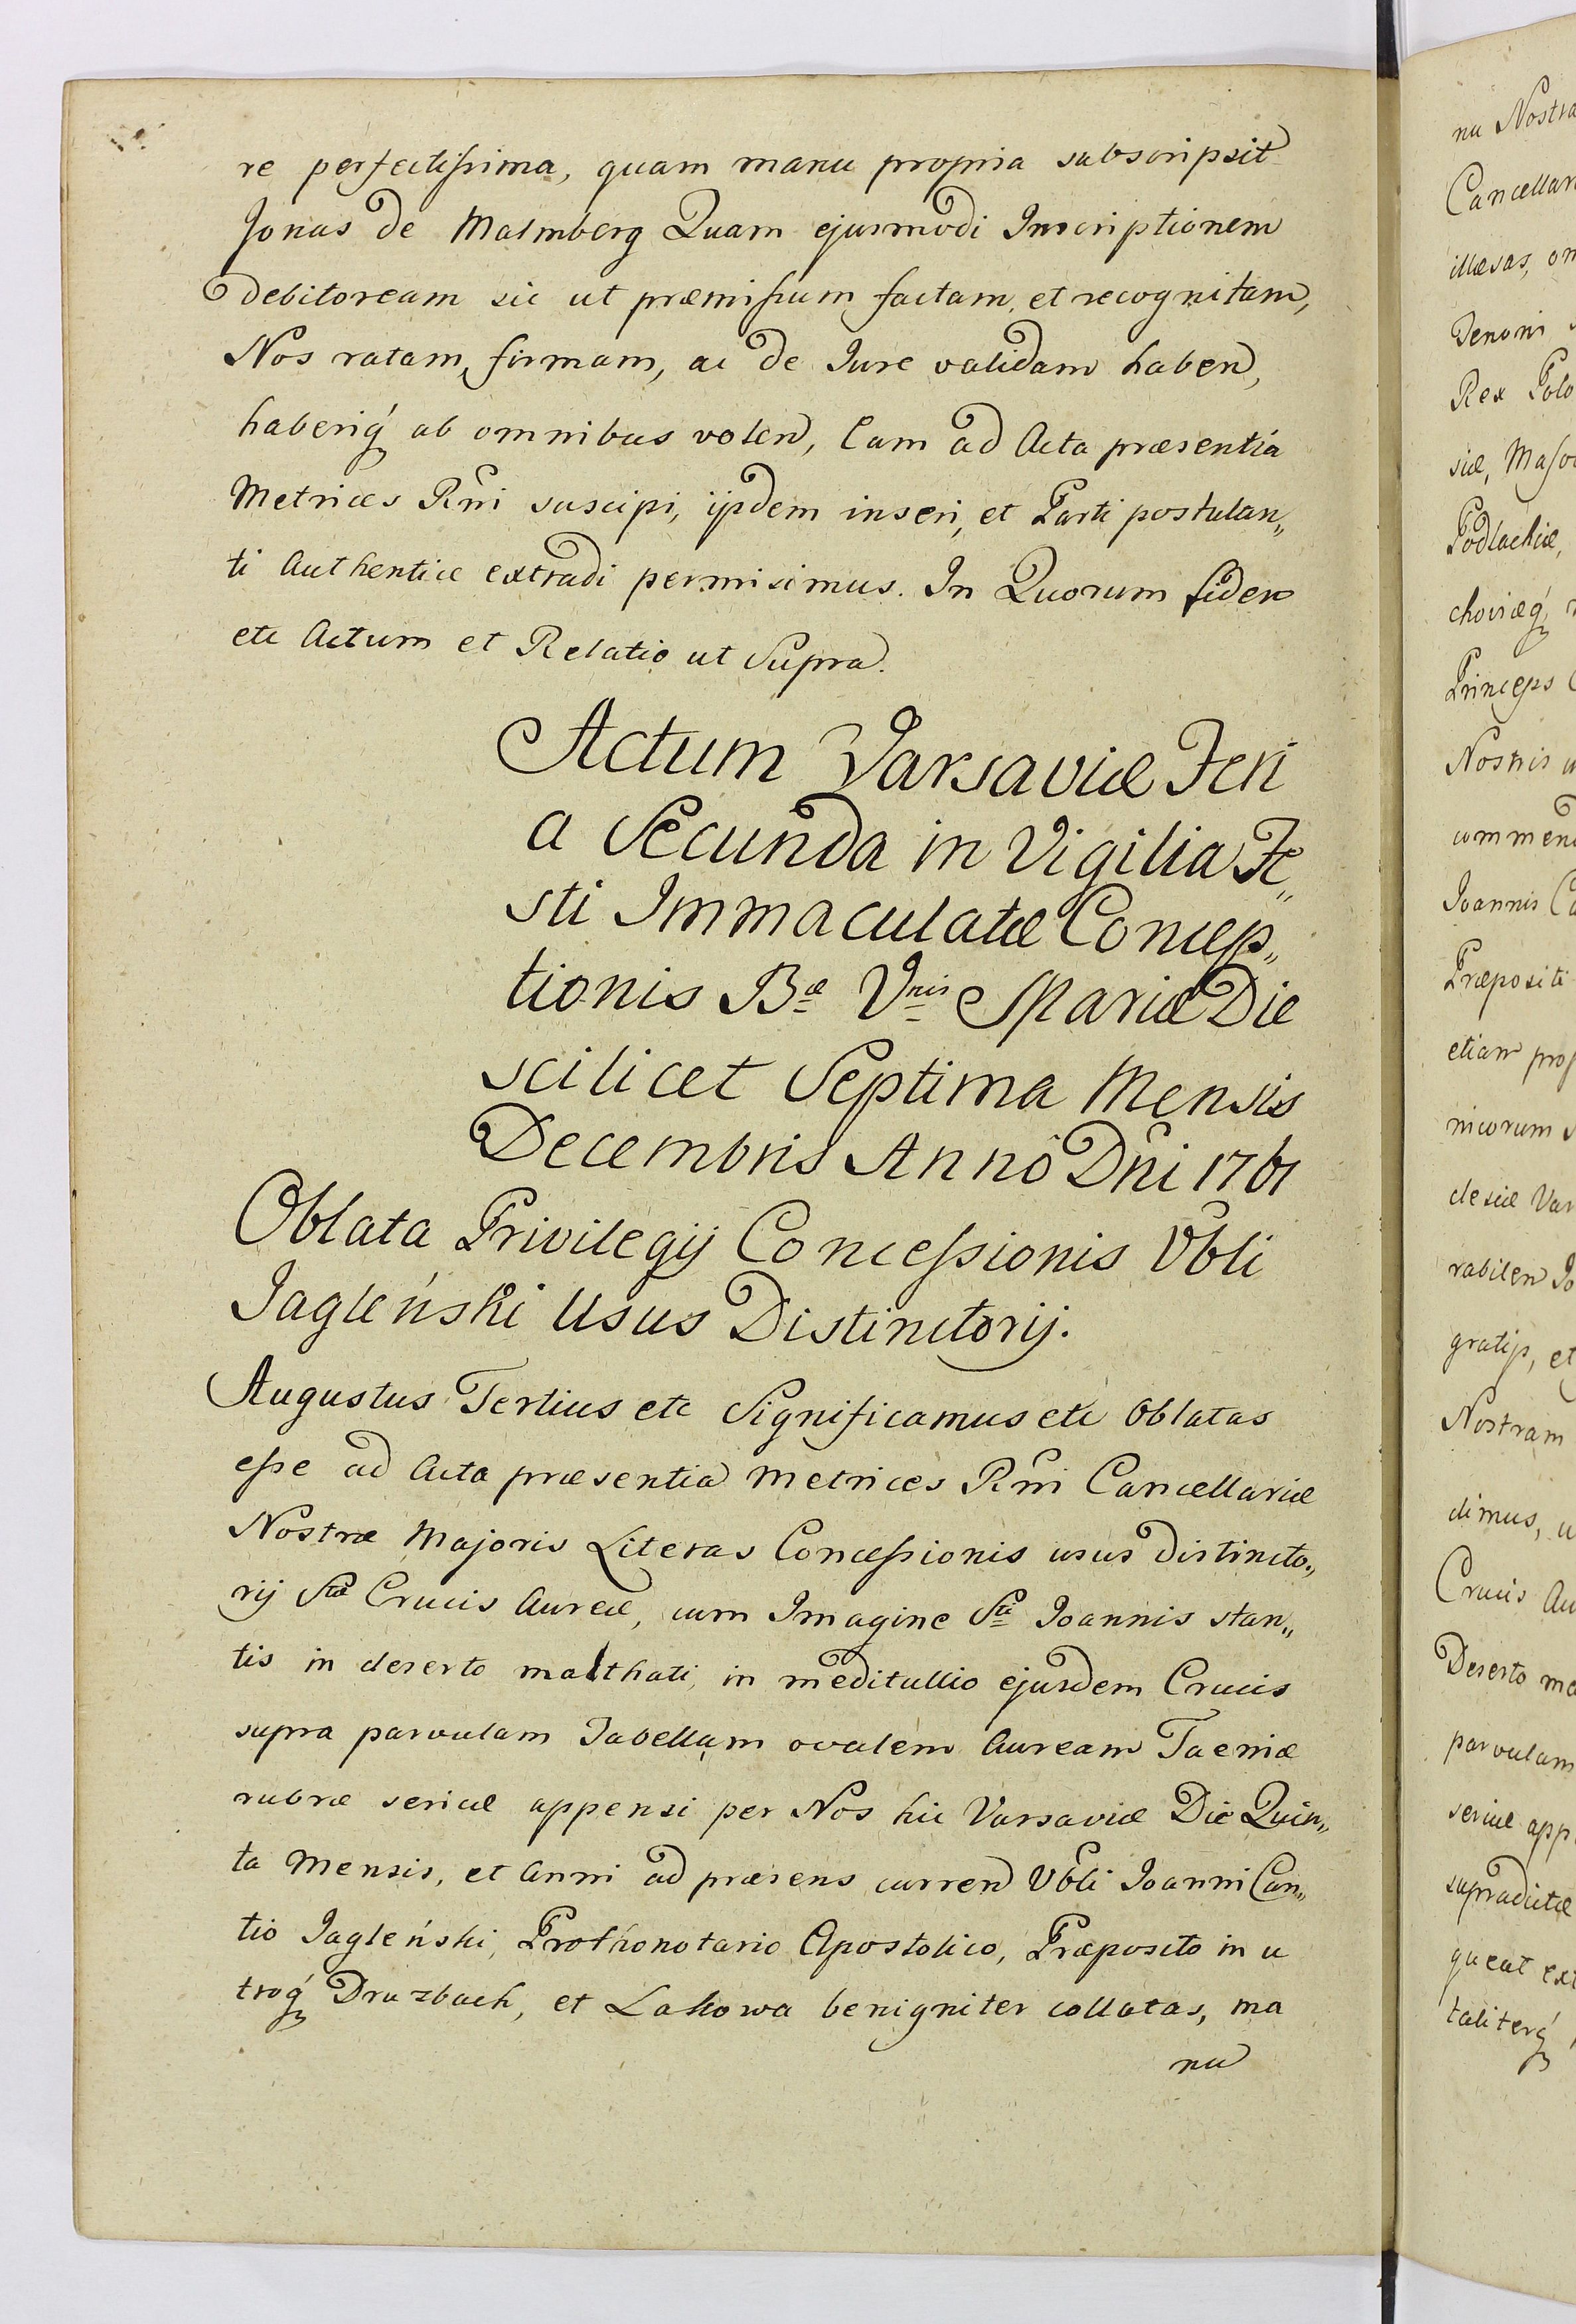 re perfectissima, quam manu propria subscripsit
Jonas de Malmberg Quam ejusmodi Inscriptionem
debitoream sic ut præmissum factam, et recognitam,
Nos ratam, firmam, ac de Jure validam haben,
haberiq́ ab omnibus volen, Eam ad Acta præsentia
Metrices Rñi suscipi, ijsdem inseri, et Parti postulan„
ti Authentice extradi permisimus. In Quorum fidem
etc Actum et Relatio ut Supra.
Actum Varsaviæ Feri
a Secunda in Vigilia Fe„
sti Immaculatæ Concep„
tionis Bæ Vnis Mariæ Die
scilicet Septima Mensis
Decembris Anno Dñi 1761
Oblata Privilegij Concessionis Vbli
Jagleński Usus Distinctorij.
Augustus Tertius etc Significamus etc Oblatas
esse ad Acta præsentia Metrices Rñi Cancellariæ
Nostræ Majoris Literas Concessionis usus distincto„
rij Stæ Crucis Aureæ, cum Imagine Sti Joannis stan„
tis in deserto malthati, in meditullio ejusdem Crucis
supra parvulam Tabellam ovalem Auream Taeniæ
rubræ sericæ appensi per Nos hic Varsaviæ Die Quin„
ta Mensis, et Anni ad præsens curren Vbli Joanni Can„
tio Jagleński, Prothonotario Apostolico, Præposito in u
troq́ Druzbach, et Lakowa benigniter collatas, ma
nu
nu Nostra
Cancellar
illæsas, om
Tenoris
Rex Polo
siæ, Maso
Podlachiæ,
choviæq́
Princeps
Nostris
commen
Joannis Ca
Præpositi
etiam prop
nicorum
clesiæ Var
rabilem Jo
gratijs, et
Nostram
dimus, u
Crucis Au
Deserto ma
parvulam
sericæ app
supradictæ
queat ext
taliterq́